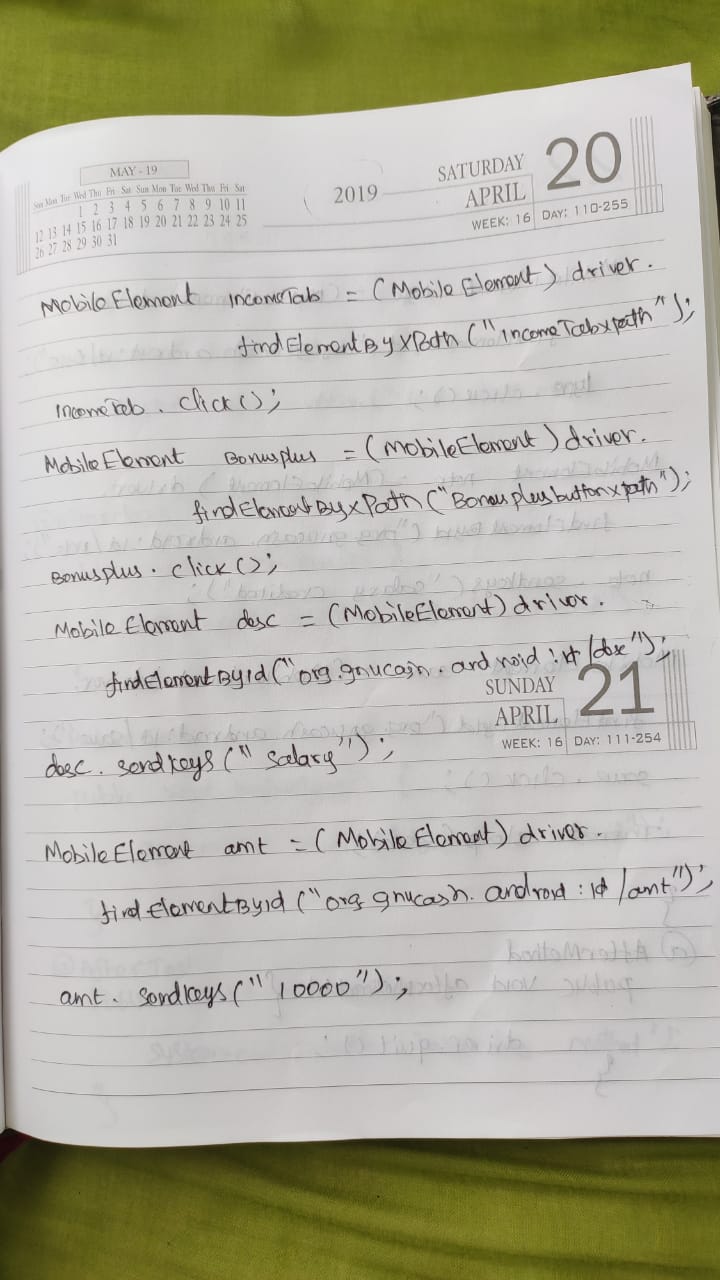 MAY - 19
Sun Mon Tue Wed Thu Fri Sat Sun Mon Tue Wed Thu Fri Sat
1 2 3 4 5 6 7 8 9 10 11
12 13 14 15 16 17 18 19 20 21 22 23 24 25
26 27 28 29 30 31
2019
SATURDAY
APRIL
20
WEEK: 16 DAY: 110-255
MobileElement IncomeTab = (MobileElement) driver.
findElementByXPath ("IncomeTabxpath");
IncomeTab. click();
MobileElement Bonusplus = (MobileElement) driver.
findElementByxPath ("Bonusplusbuttonxpath");
Bonusplus. click();
MobileElement desc = (MobileElement) driver.
findElementById ("org.gnucash.android:id/desc");
SUNDAY
APRIL
21
WEEK: 16 DAY: 111-254
desc. sendkeys ("Salary");
MobileElement amt = (MobileElement) driver.
findElementById ("org gnucash. android : id /amt");
amt. sendkeys("10000");